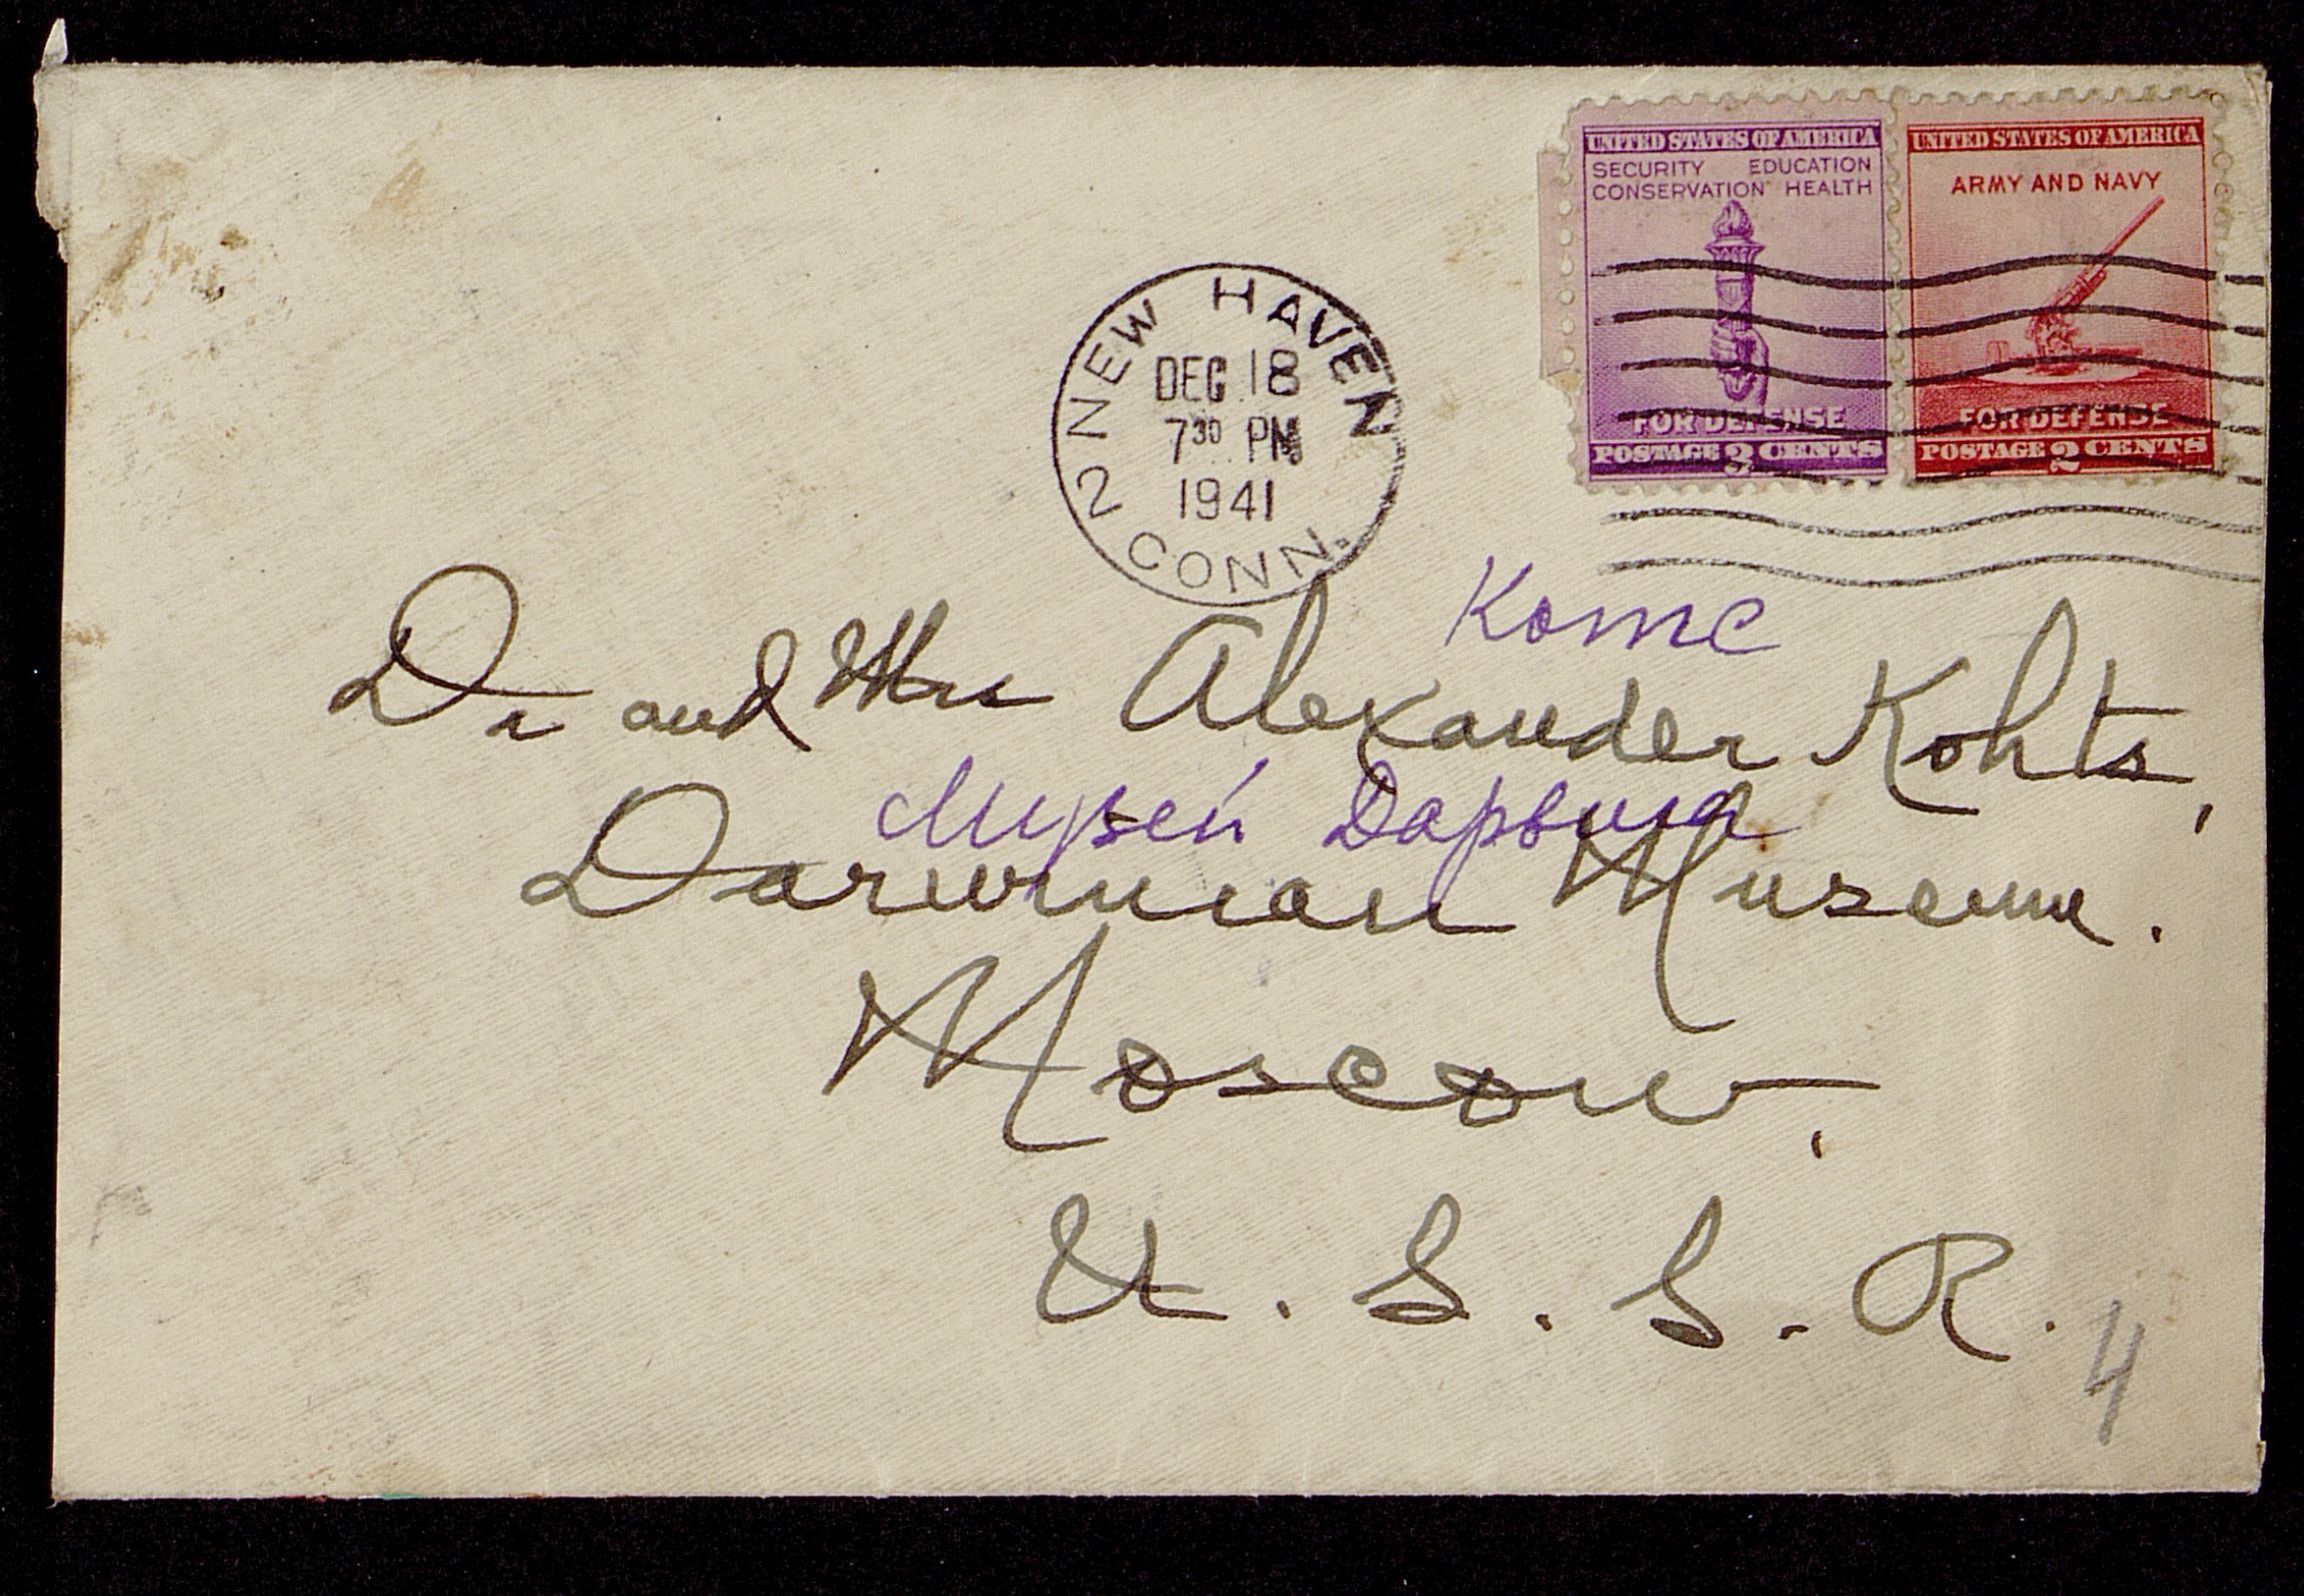 UNITED STATES OF AMERICA
SECURITY EDUCATION
CONSERVATION HEALTH
FOR DEFENSE
POSTAGE 3 CENTS
UNITED STATES OF AMERICA
ARMY AND NAVY
FOR DEFENSE
POSTAGE 2 CENTS
2 NEW HAVEN CONN.
DEC 18
7 30 PM
1941
Котс
Dr and Mrs Alexander Kohts,
Музей Дарвина
Darwinian Museum.
Moscow.
U. S. S. R.
4